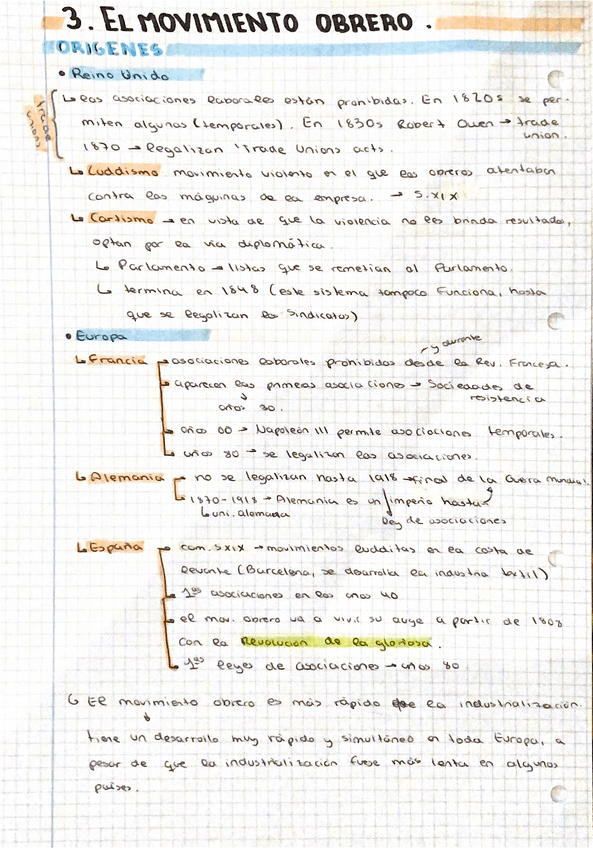 3. EL MOVIMIENTO OBRERO.
ORIGENES
• Reino Unido
trade unions
↳ las asociaciones laborales están prohibidas. En 1820s se per-
miten algunas (temporales). En 1830s Robert Owen → trade
union.
1870 → legalizan 'Trade Unions acts.
↳ Luddismo movimiento violento en el que los obreros atentaban
contra las máquinas de la empresa. → S.XIX
↳ Cartismo → en vista de que la violencia no les brinda resultado,
optan por la vía diplomática.
↳ Parlamento → listas que se remetían al Parlamento.
↳ termina en 1848 (este sistema tampoco funciona, hasta
que se legalizan los Sindicatos)
• Europa
→ y durante
↳ Francia → asociaciones laborales prohibidas desde la Rev. Francesa.
→ aparecen las primeras asociaciones → Sociedades de
resistencia
↓
años 30.
→ años 60 → Napoleón III permite asociaciones temporales.
→ años 80 → se legalizan las asociaciones.
↳ Alemania → no se legalizan hasta 1918 → final de la Guerra mundial.
→ 1870-1918 → Alemania es un imperio hasta
↳ uni. alemana
ley de asociaciones
↳ España → com. S XIX → movimientos ludditas en la costa de
levante (Barcelona, se desarrolla la industria textil)
→ 1as asociaciones en los años 40
→ el mov. obrero va a vivir su auge a partir de 1808
con la Revolución de la gloriosa.
→ 1as leyes de asociaciones → años 80
↳ El movimiento obrero es más rápido que la industrialización.
↓
tiene un desarrollo muy rápido y simultáneo en toda Europa, a
pesar de que la industrialización fuese más lenta en algunos
países.